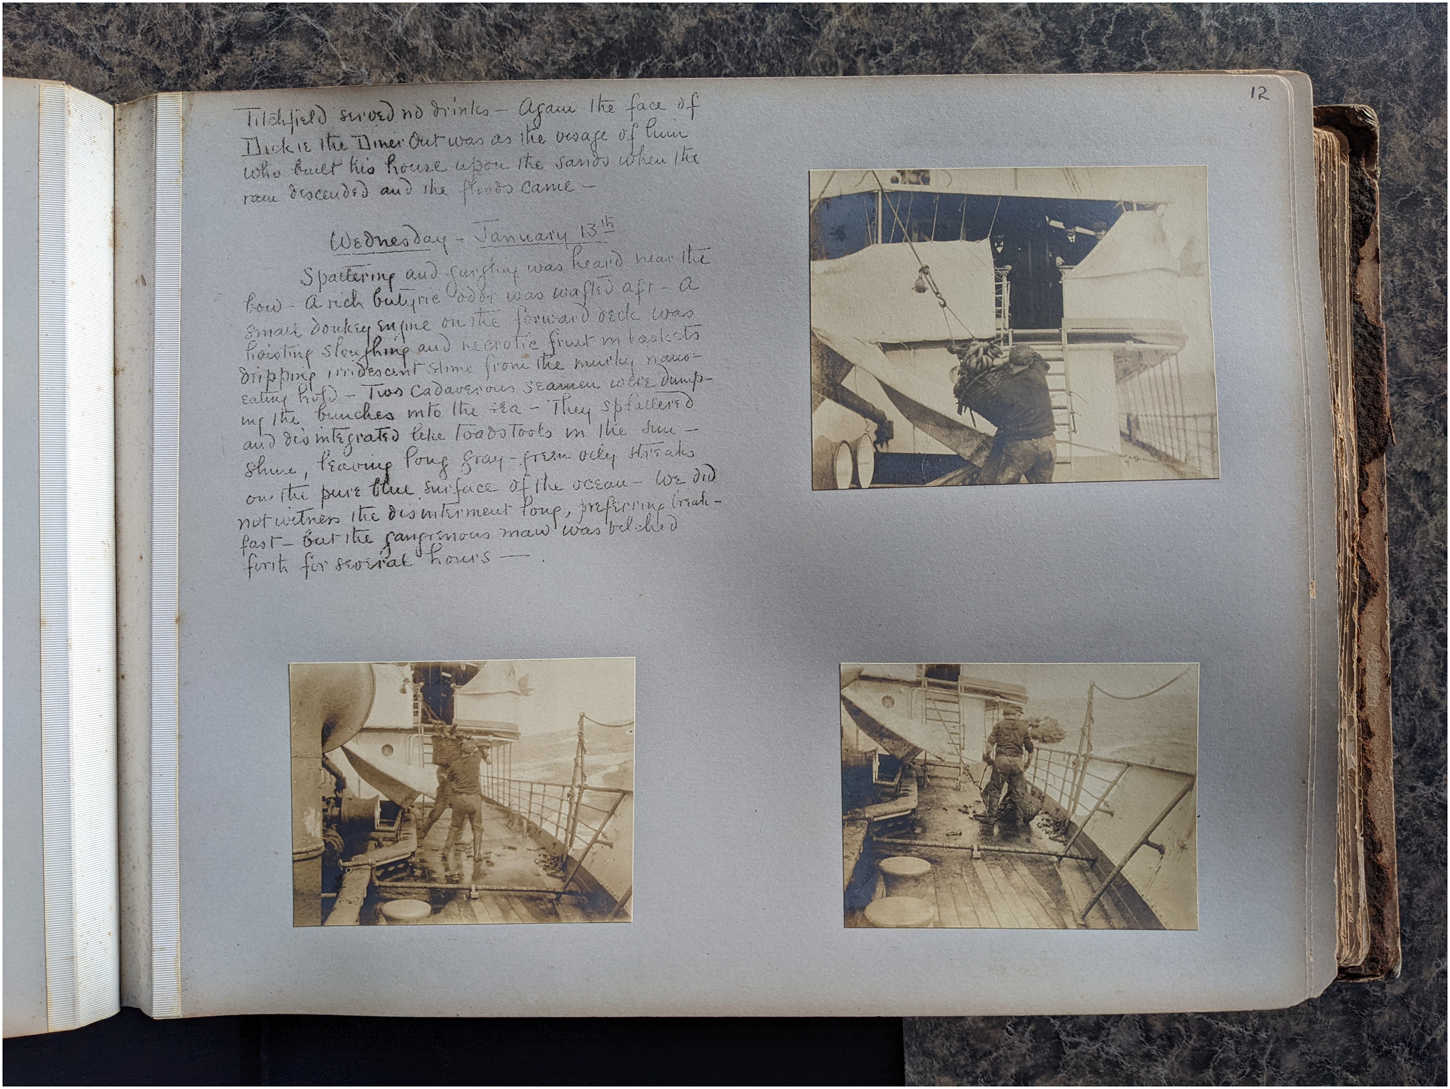 12
Titchfield served no drinks — Again the face of
Dickie the Diner Out was as the visage of him
who built his house upon the sands when the
rain descended and the floods came —
Wednesday — January 13th
Spattering and gurgling was heard near the
bow — A rich butyric odor was wafted aft — A
small donkey engine on the forward deck was
hoisting sloughing and necrotic fruit in baskets
dripping irridescent slime from the murky naus-
eating hold — Two cadaverous seamen were dump-
ing the bunches into the sea — They splattered
and disintegrated like toadstools in the sun —
shine, leaving long gray-green oily streaks
on the pure blue surface of the ocean — We did
not witness the disinterment long, preferring break-
fast — but the gangrenous maw was belched
forth for several hours —